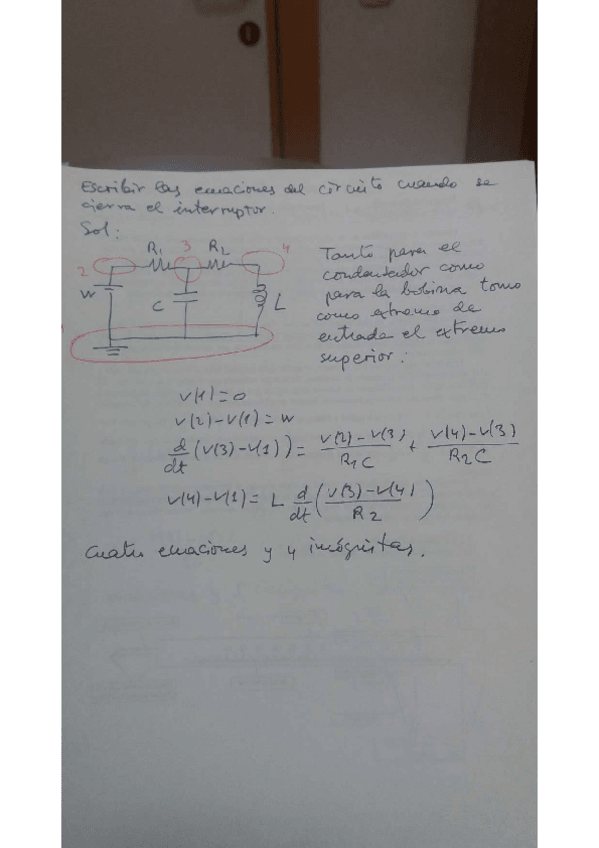 Escribir las ecuaciones del circuito cuando se
cierra el interruptor.
Sol:
R1 3 R2 4
2
W C L
Tanto para el
condensador como
para la bobina tomo
como extremo de
entrada el extremo
superior:
V(1)=0
V(2)-V(1)=W
d/dt (V(3)-V(1)) = (V(2)-V(3))/(R1C) + (V(4)-V(3))/(R2C)
V(4)-V(1)= L d/dt ((V(3)-V(4))/R2)
Cuatro ecuaciones y 4 incógnitas.